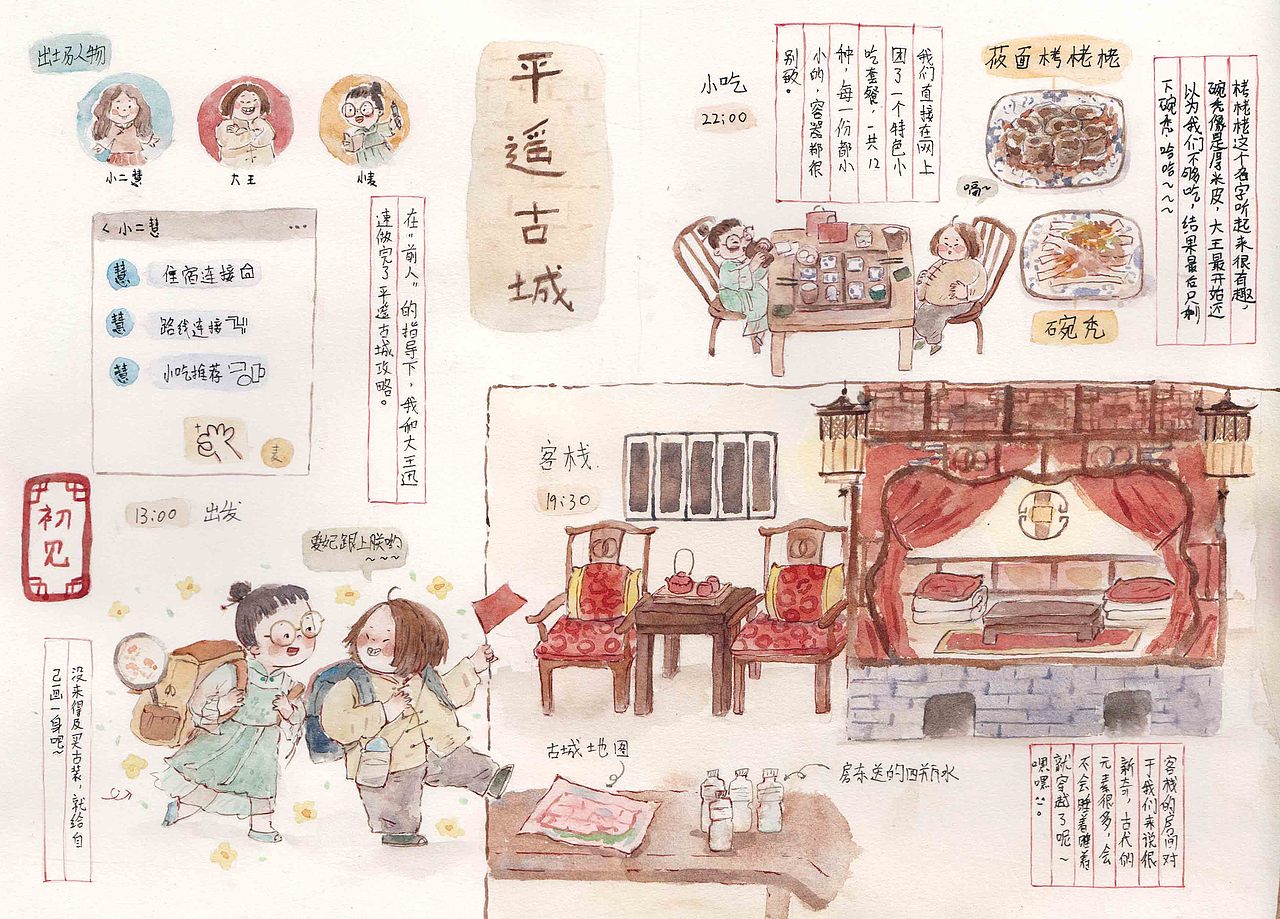 平遥古城
出场人物
小二慧
大王
小麦
< 小二慧 ...
慧 住宿连接
慧 路线连接
慧 小吃推荐
麦
在"前人"的指导下,我和大王迅
速做完了平遥古城攻略。
初见
13:00 出发
爱妃跟上朕哟~~~
没来得及买古装,就给自
己画一身呢~
小吃
22:00
我们直接在网上
团了一个特色小
吃套餐,一共12
种,每一份都小
小的,容器都很
别致。
嗝~
莜面栲栳栳
碗秃
栲栳栳这个名字听起来很有趣,
碗秃像是厚米皮,大王最开始还
以为我们不够吃,结果最后只剩
下碗秃,哈哈~~~
客栈
19:30
古城地图
房东送的四瓶水
客栈的房间对
于我们来说很
新奇,古代的
元素很多,会
不会睡着睡着
就穿越了呢~
嘿嘿。